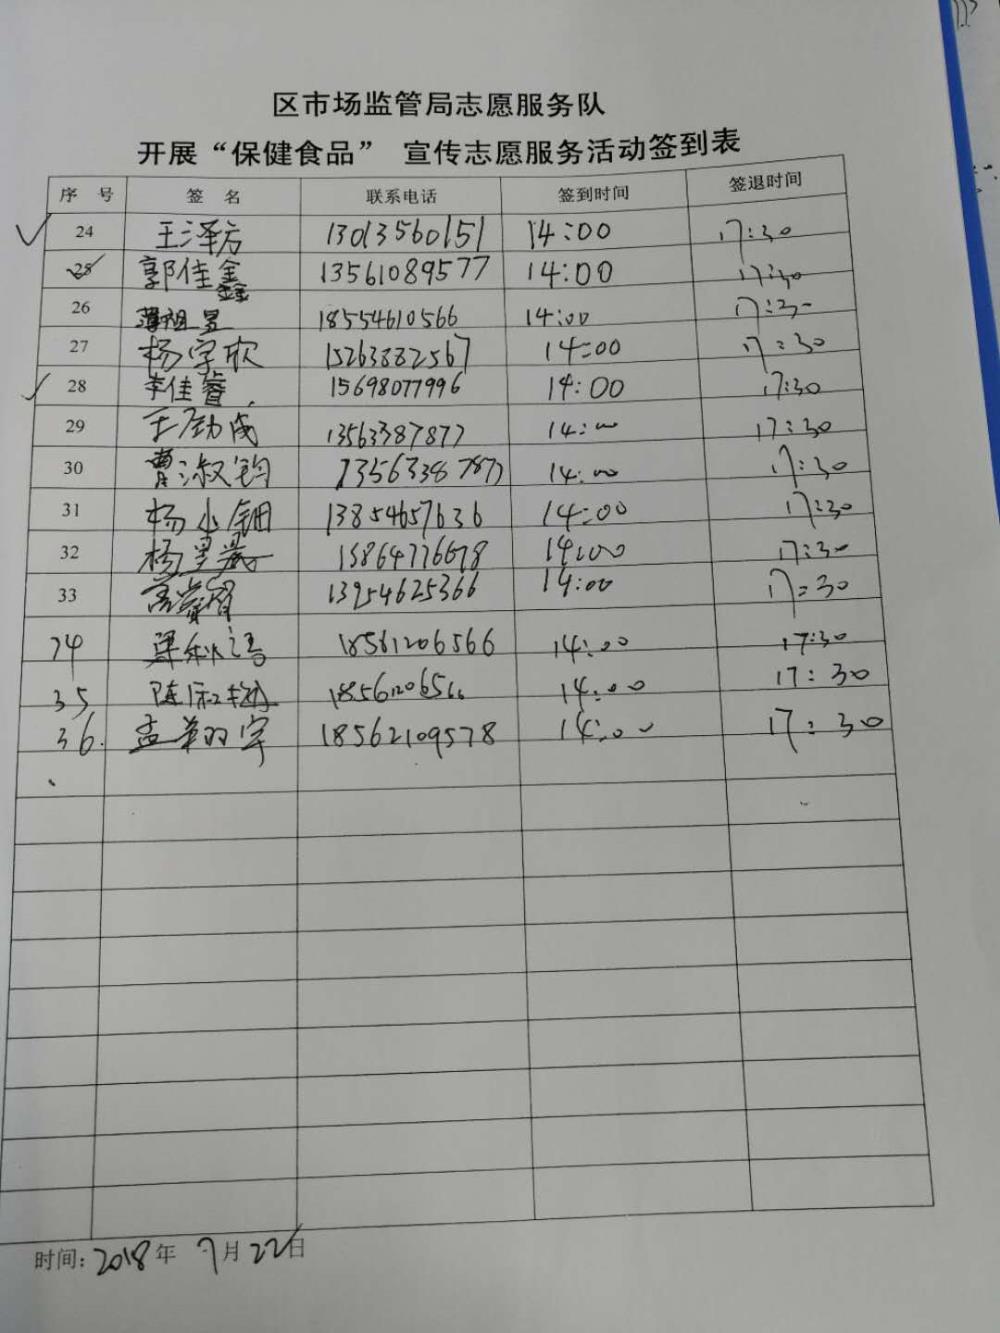 区市场监管局志愿服务队
开展“保健食品” 宣传志愿服务活动签到表
序 号 签 名 联系电话 签到时间 签退时间
24 王泽方 13013560151 14:00 17:30
25 郭佳鑫 13561089577 14:00 17:30
26 薄祖昱 18554610566 14:00 17:30
27 杨字欣 15263882567 14:00 17:30
28 李佳睿 15698077996 14:00 17:30
29 王劲成 13563387877 14:00 17:30
30 曹淑钧 13563387877 14:00 17:30
31 杨小钿 13854657636 14:00 17:30
32 杨 15864776678 14:00 17:30
33 13954625366 14:00 17:30
34 18561206566 14:00 17:30
35 陈 14:00 17:30
36. 孟 宇 18562109578 14:00 17:30
时间: 2018 年 7 月 22 日